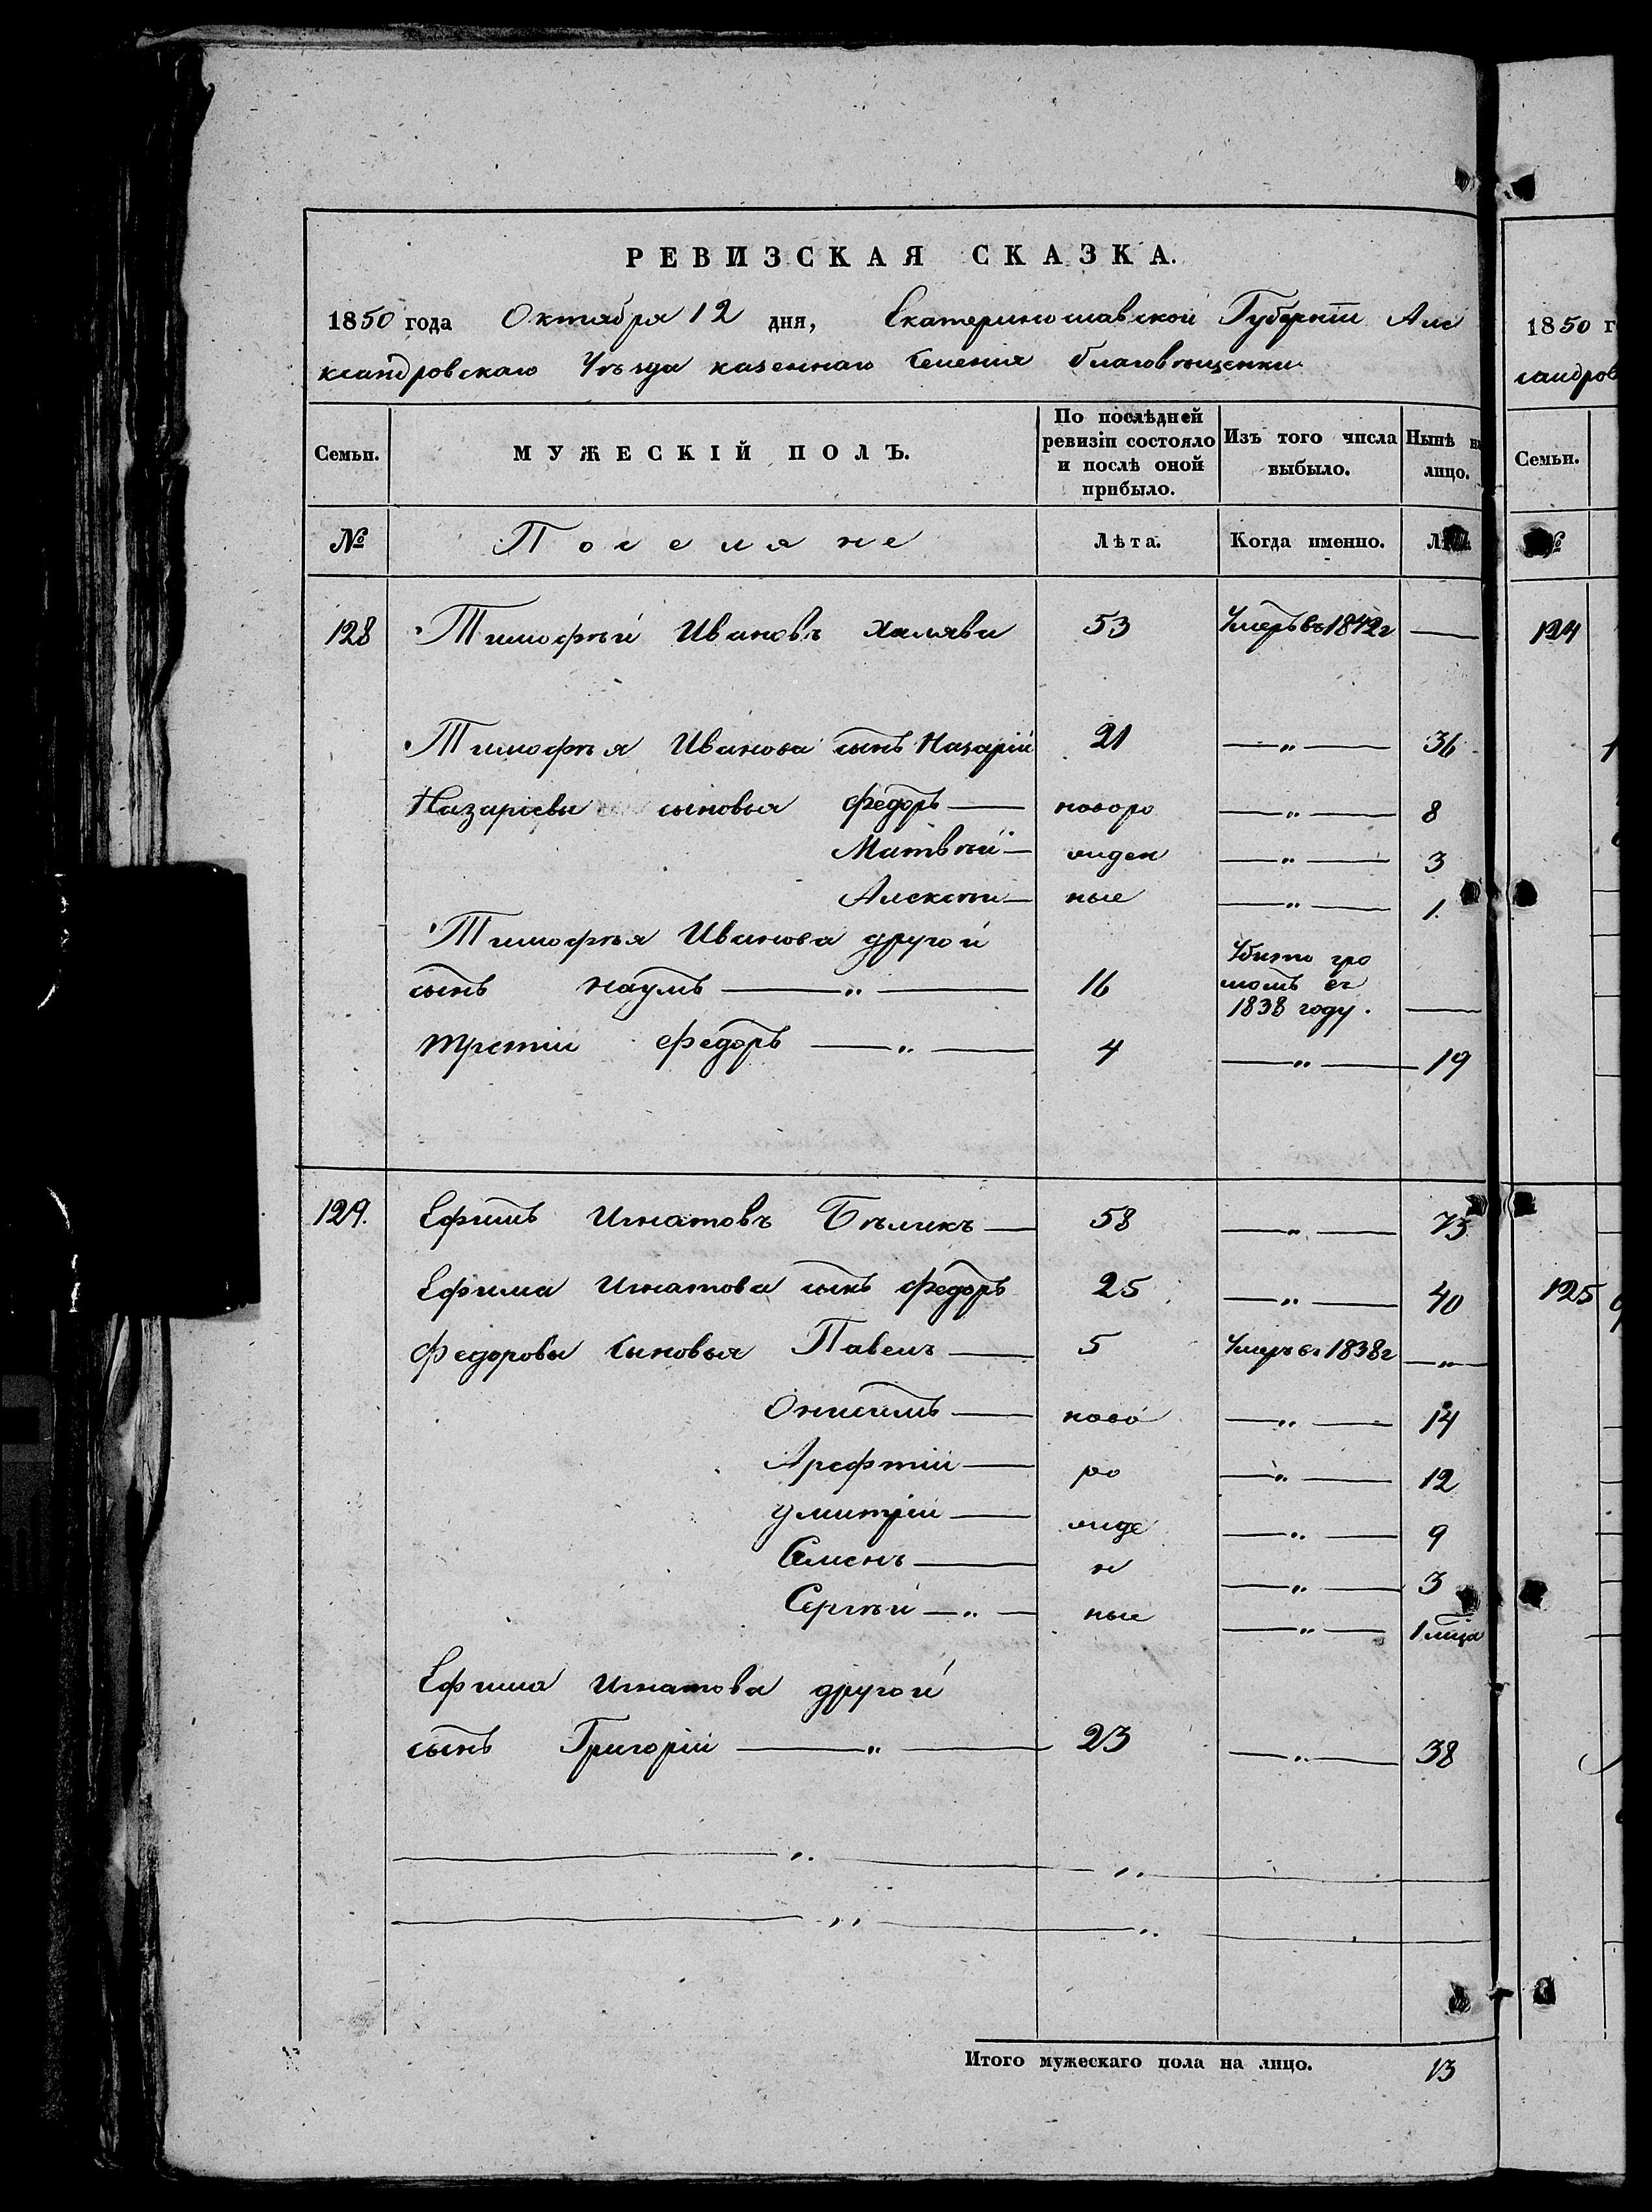 РЕВИЗСКАЯ СКАЗКА.
1850 года Октября 12 дня, Екатеринославской Губернии Але
ксандровскаго Уѣзда казеннаго Селения благовѣщенки
Семьи. МУЖЕСКІЙ ПОЛЪ. По послѣдней ревизіи состояло и послѣ оной прибыло. Изъ того числа выбыло. Нынѣ на лицо.
№ Поселяне Лѣта. Когда именно.
128 Тимофѣй Ивановъ Халява 53 Умеръ въ 1842 г —
Тимофѣя Иванова сынъ Назарій 21 —„— 36
Назариевы сыновья Федоръ — новоро —„— 8
Матвѣй — жден —„— 3
Алексѣй — ные —„— 1.
Тимофѣя Иванова другой
сынъ Наумъ —„— 16 Убито гро
момъ въ
1838 году. —
третий Федоръ —„— 4 —„— 19
129. Ефимъ Игнатовъ Бѣликъ — 58 —„— 73
Ефима Игнатова сынъ Федоръ 25 —„— 40
Федоровы сыновья Павелъ — 5 Умеръ въ 1838 г —„—
Онисимъ — ново —„— 14
Арефтій — ро —„— 12
Дмитрій — жде —„— 9
Семенъ — н —„— 3
Сергѣй —„— ные —„— 1 мѣца
Ефима Игнатова другой
сынъ Григорій —„— 23 —„— 38
Итого мужескаго пола на лицо. 13
1850 г
сандров
Семьи.
№
124
125